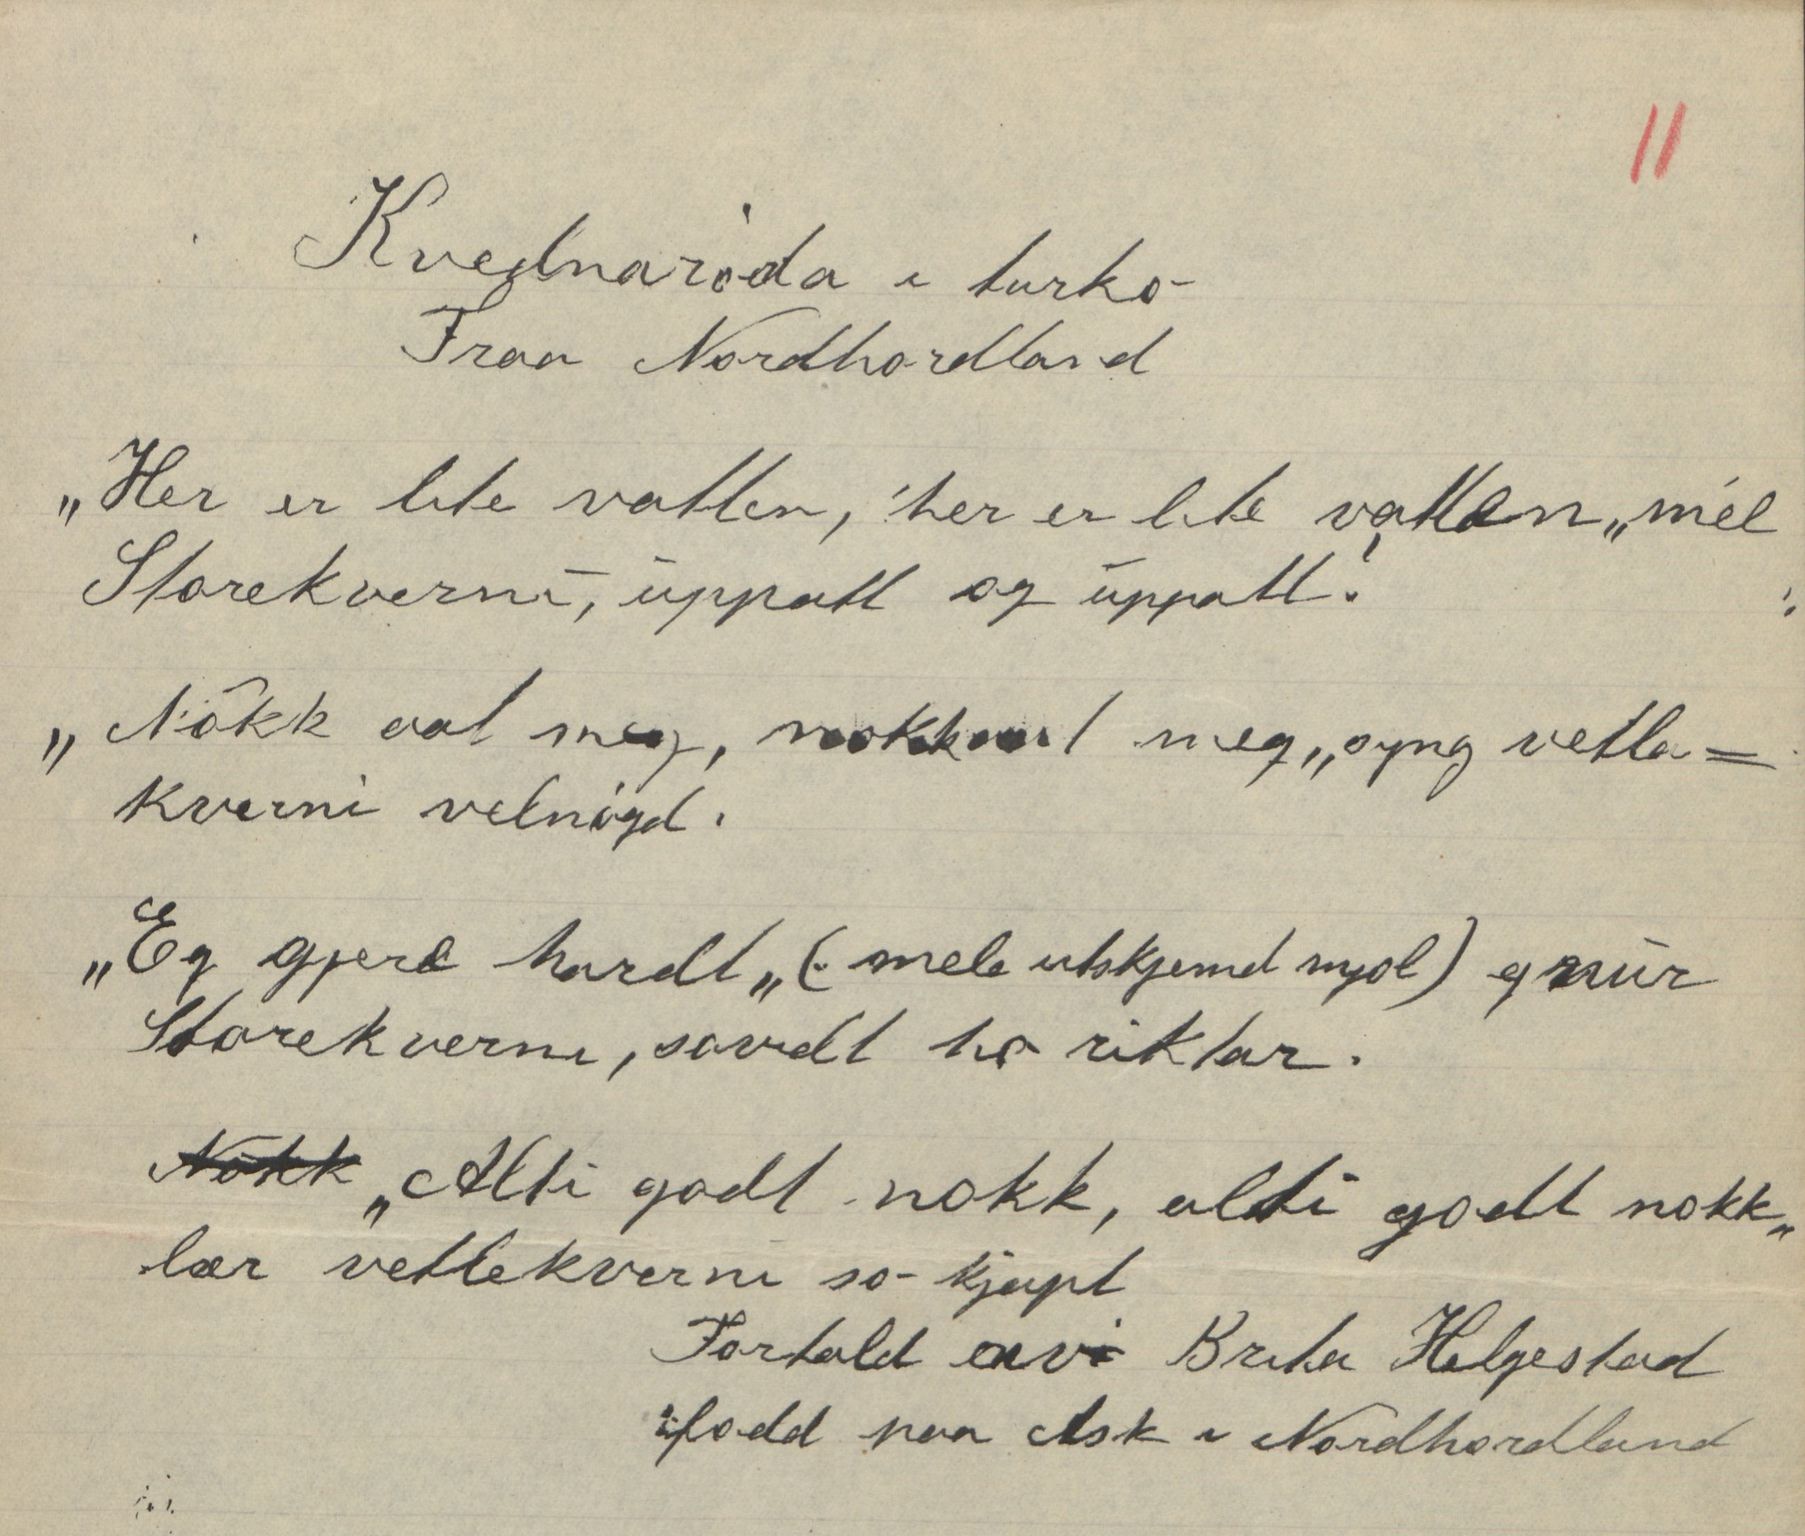 11
Kvednaröda i turko
Fraa Nordhordland
„Her er lite vatten, her er lite vatten„ mel
Storekverni, üppatt og üppatt!
„Nökk aat meg, nokk aat meg„ syng vetla=
kverni velnögd.
„Eg gjere hardt„ (: mele utskjemd mjöl) gnür
Storekverni, so vidt ho riktar.
„Alti godt nokk, alti godt nokk„
lær vetlekverni so kjapt
Fortald av Brita Helgestad
fodd paa Ask i Nordhordland